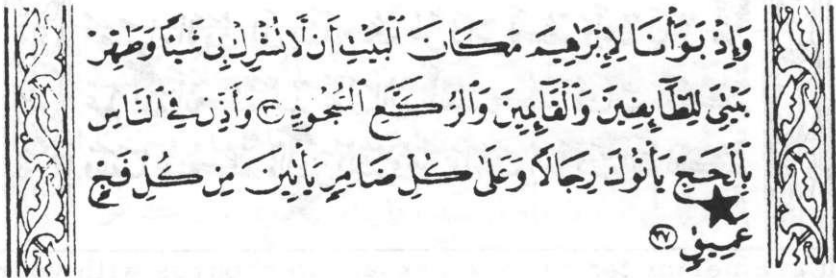 وَإِذْ بَوَّأْنَا لِإِبْرَٰهِيمَ مَكَانَ ٱلْبَيْتِ أَن لَّا تُشْرِكْ بِى شَيْـًٔا وَطَهِّرْ
بَيْتِىَ لِلطَّآئِفِينَ وَٱلْقَآئِمِينَ وَٱلرُّكَّعِ ٱلسُّجُودِ ۝ وَأَذِّن فِى ٱلنَّاسِ
بِٱلْحَجِّ يَأْتُوكَ رِجَالًا وَعَلَىٰ كُلِّ ضَامِرٍ يَأْتِينَ مِن كُلِّ فَجٍّ
عَمِيقٍ ٢٧